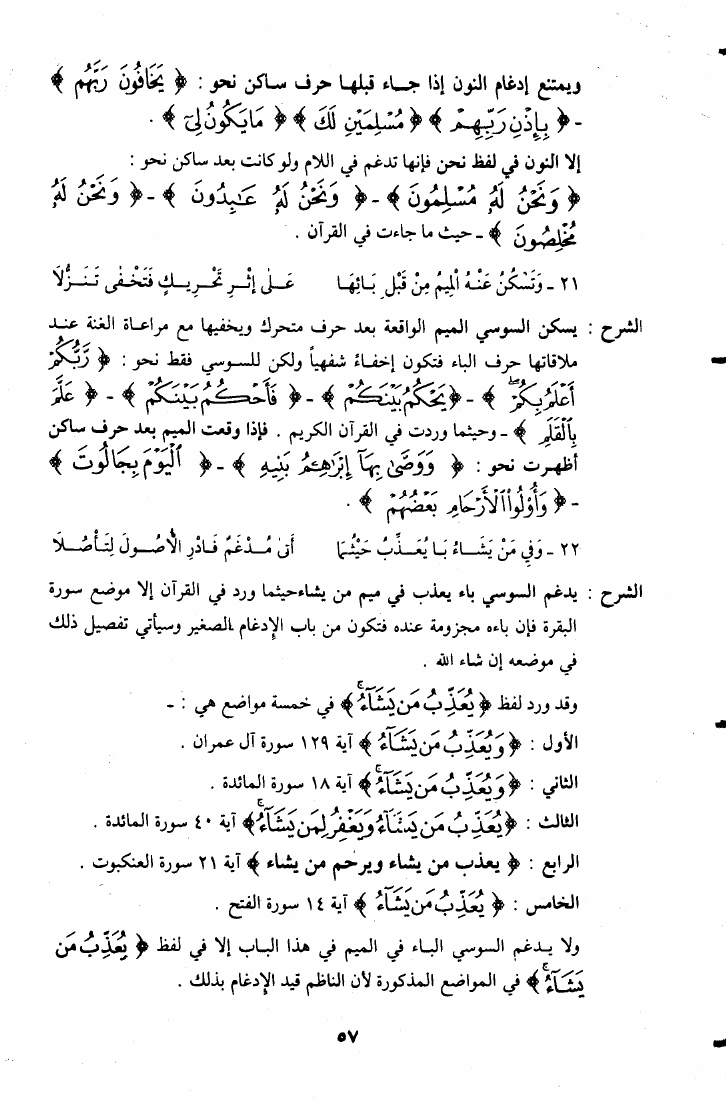 ويمتنع إدغام النون إذا جاء قبلها حرف ساكن نحو : ﴿ يَخَافُونَ رَبَّهُم ﴾
- ﴿ بِإِذْنِ رَبِّهِمْ ﴾ ﴿ مُسْلِمَيْنِ لَكَ ﴾ ﴿ مَا يَكُونُ لِيٓ ﴾ .
إلا النون في لفظ نحن فإنها تدغم في اللام ولو كانت بعد ساكن نحو :
﴿ وَنَحْنُ لَهُۥ مُسْلِمُونَ ﴾ - ﴿ وَنَحْنُ لَهُۥ عَٰبِدُونَ ﴾ - ﴿ وَنَحْنُ لَهُۥ
مُخْلِصُونَ ﴾ - حيث ما جاءت في القرآن .
٢١ - وَتَسْكُنُ عَنْهُ الْمِيمُ مِنْ قَبْلِ بَائِهَا عَلَى إِثْرِ تَحْرِيكٍ فَتَخْفَى تَنَزُّلَا
الشرح : يسكن السوسي الميم الواقعة بعد حرف متحرك ويخفيها مع مراعاة الغنة عند
ملاقاتها حرف الباء فتكون إخفاءً شفهياً ولكن للسوسي فقط نحو : ﴿ رَّبُّكُمْ
أَعْلَمُ بِكُمْ ﴾ - ﴿ يَحْكُمُ بَيْنَكُمْ ﴾ - ﴿ فَأَحْكُمُ بَيْنَكُمْ ﴾ - ﴿ عَلَّمَ
بِالْقَلَمِ ﴾ - وحيثما وردت في القرآن الكريم . فإذا وقعت الميم بعد حرف ساكن
أظهرت نحو : ﴿ وَوَصَّىٰ بِهَآ إِبْرَٰهِـۧمُ بَنِيهِ ﴾ - ﴿ ٱلْيَوْمَ بِجَالُوتَ ﴾
- ﴿ وَأُوْلُواْ ٱلْأَرْحَامِ بَعْضُهُمْ ﴾ .
٢٢ - وَفِي مَنْ يَشَاءُ بَا يُعَذِّبُ حَيْثُمَا أَتَى مُدْغَمٌ فَادْرِ الأُصُولَ لِتَأْصُلَا
الشرح : يدغم السوسي باء يعذب في ميم من يشاء حيثما ورد في القرآن إلا موضع سورة
البقرة فإن باءه مجزومة عنده فتكون من باب الإدغام الصغير وسيأتي تفصيل ذلك
في موضعه إن شاء الله .
وقد ورد لفظ ﴿ يُعَذِّبُ مَن يَشَآءُ ﴾ في خمسة مواضع هي : -
الأول : ﴿ وَيُعَذِّبُ مَن يَشَآءُ ﴾ آية ١٢٩ سورة آل عمران .
الثاني : ﴿ وَيُعَذِّبُ مَن يَشَآءُ ﴾ آية ١٨ سورة المائدة .
الثالث : ﴿ يُعَذِّبُ مَن يَشَآءُ وَيَغْفِرُ لِمَن يَشَآءُ ﴾ آية ٤٠ سورة المائدة .
الرابع : ﴿ يعذب من يشاء ويرحم من يشاء ﴾ آية ٢١ سورة العنكبوت .
الخامس : ﴿ يُعَذِّبُ مَن يَشَآءُ ﴾ آية ١٤ سورة الفتح .
ولا يدغم السوسي الباء في الميم في هذا الباب إلا في لفظ ﴿ يُعَذِّبُ مَن
يَشَآءُ ﴾ في المواضع المذكورة لأن الناظم قيد الإدغام بذلك .
٥٧